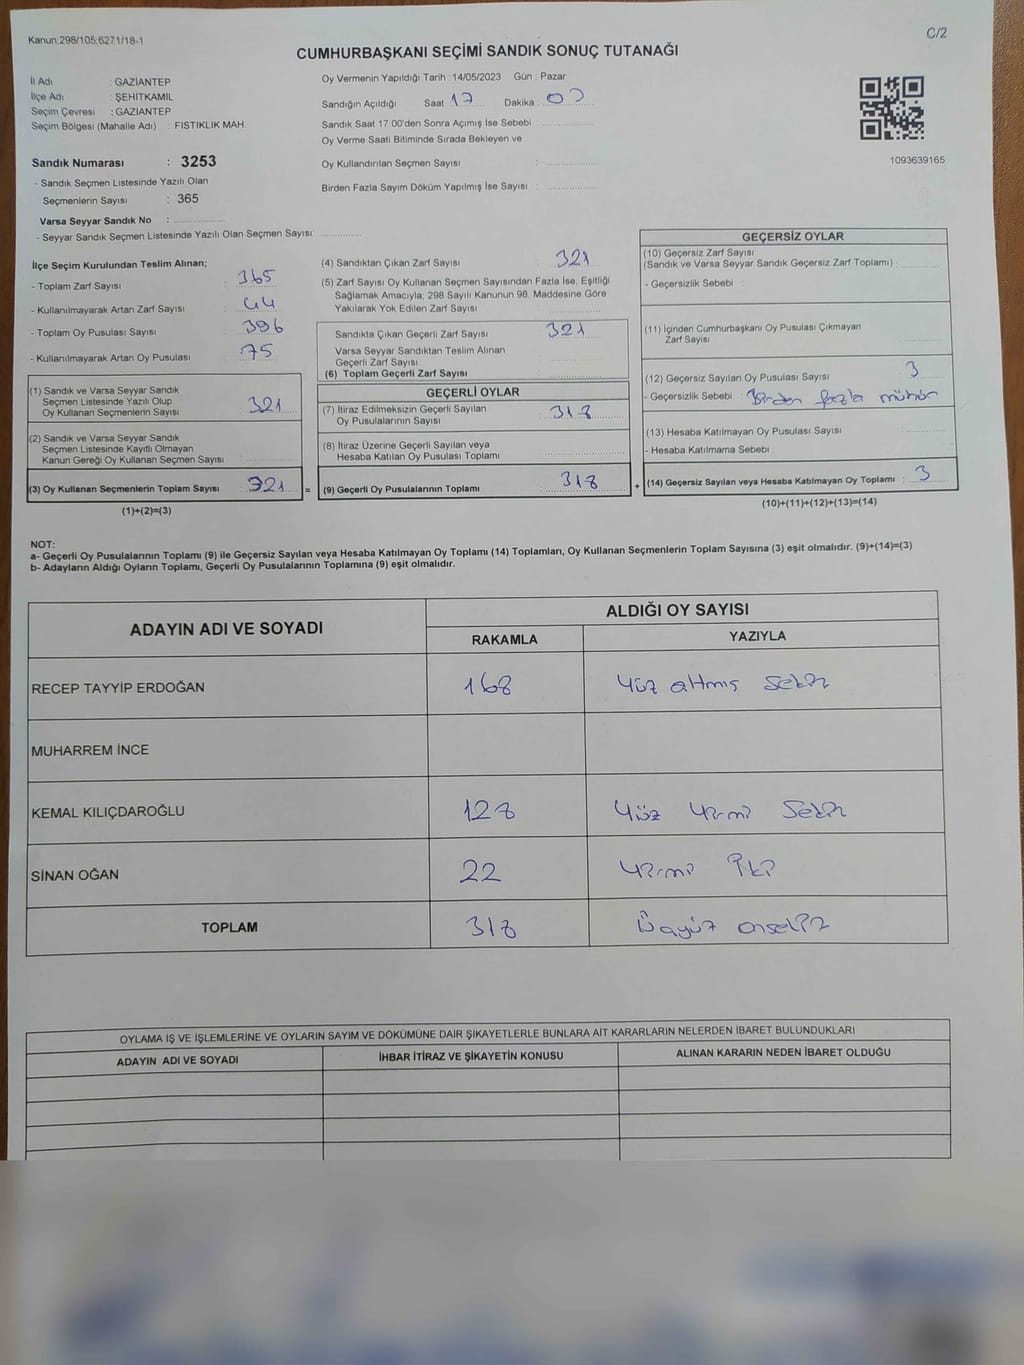 Kanun;298/105;6271/18-1
C/2
CUMHURBAŞKANI SEÇİMİ SANDIK SONUÇ TUTANAĞI
İl Adı : GAZİANTEP
İlçe Adı : ŞEHİTKAMİL
Seçim Çevresi : GAZİANTEP
Seçim Bölgesi (Mahalle Adı) : FISTIKLIK MAH.
Sandık Numarası : 3253
- Sandık Seçmen Listesinde Yazılı Olan
Seçmenlerin Sayısı : 365
Varsa Seyyar Sandık No :
- Seyyar Sandık Seçmen Listesinde Yazılı Olan Seçmen Sayısı:
Oy Vermenin Yapıldığı Tarih : 14/05/2023 Gün : Pazar
Sandığın Açıldığı Saat 17 Dakika :
Sandık Saat 17:00'den Sonra Açımış İse Sebebi :
Oy Verme Saati Bitiminde Sırada Bekleyen ve
Oy Kullandırılan Seçmen Sayısı :
Birden Fazla Sayım Döküm Yapılmış İse Sayısı :
1093639165
İlçe Seçim Kurulundan Teslim Alınan;
- Toplam Zarf Sayısı : 365
- Kullanılmayarak Artan Zarf Sayısı : 44
- Toplam Oy Pusulası Sayısı : 396
- Kullanılmayarak Artan Oy Pusulası : 75
(1) Sandık ve Varsa Seyyar Sandık
Seçmen Listesinde Yazılı Olup
Oy Kullanan Seçmenlerin Sayısı : 321
(2) Sandık ve Varsa Seyyar Sandık
Seçmen Listesinde Kayıtlı Olmayan
Kanun Gereği Oy Kullanan Seçmen Sayısı :
(3) Oy Kullanan Seçmenlerin Toplam Sayısı : 321
(1)+(2)=(3)
(4) Sandıktan Çıkan Zarf Sayısı : 321
(5) Zarf Sayısı Oy Kullanan Seçmen Sayısından Fazla İse, Eşitliği
Sağlamak Amacıyla, 298 Sayılı Kanunun 98. Maddesine Göre
Yakılarak Yok Edilen Zarf Sayısı :
Sandıkta Çıkan Geçerli Zarf Sayısı : 321
Varsa Seyyar Sandıktan Teslim Alınan
Geçerli Zarf Sayısı :
(6) Toplam Geçerli Zarf Sayısı
GEÇERLİ OYLAR
(7) İtiraz Edilmeksizin Geçerli Sayılan
Oy Pusulasının Sayısı : 318
(8) İtiraz Üzerine Geçerli Sayılan veya
Hesaba Katılan Oy Pusulası Toplamı
= (9) Geçerli Oy Pusulalarının Toplamı : 318
GEÇERSİZ OYLAR
(10) Geçersiz Zarf Sayısı
(Sandık ve Varsa Seyyar Sandık Geçersiz Zarf Toplamı) :
- Geçersizlik Sebebi :
(11) İçinden Cumhurbaşkanı Oy Pusulası Çıkmayan
Zarf Sayısı :
(12) Geçersiz Sayılan Oy Pusulası Sayısı : 3
- Geçersizlik Sebebi : Birden fazla mühür
(13) Hesaba Katılmayan Oy Pusulası Sayısı :
- Hesaba Katılmama Sebebi :
+ (14) Geçersiz Sayılan veya Hesaba Katılmayan Oy Toplamı : 3
(10)+(11)+(12)+(13)=(14)
NOT:
a- Geçerli Oy Pusulalarının Toplamı (9) ile Geçersiz Sayılan veya Hesaba Katılmayan Oy Toplamı (14) Toplamları, Oy Kullanan Seçmenlerin Toplam Sayısına (3) eşit olmalıdır. (9)+(14)=(3)
b- Adayların Aldığı Oyların Toplamı, Geçerli Oy Pusulalarının Toplamına (9) eşit olmalıdır.
ADAYIN ADI VE SOYADI ALDIĞI OY SAYISI
RAKAMLA YAZIYLA
RECEP TAYYİP ERDOĞAN 168 Yüz altmış Sekiz
MUHARREM İNCE
KEMAL KILIÇDAROĞLU 128 Yüz Yirmi Sekiz
SİNAN OĞAN 22 Yirmi İki
TOPLAM 318 Üçyüz onsekiz
OYLAMA İŞ VE İŞLEMLERİNE VE OYLARIN SAYIM VE DÖKÜMÜNE DAİR ŞİKAYETLERLE BUNLARA AİT KARARLARIN NELERDEN İBARET BULUNDUKLARI
ADAYIN ADI VE SOYADI İHBAR İTİRAZ VE ŞİKAYETİN KONUSU ALINAN KARARIN NEDEN İBARET OLDUĞU